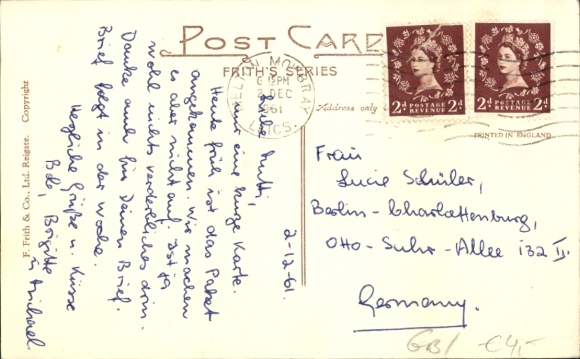 POST CARD
FRITH'S SERIES
Address only
PRINTED IN ENGLAND
F. Frith & Co., Ltd. Reigate. Copyright
MOWBRAY
6 15 PM
2 DEC
1961
LEICS.
2d POSTAGE REVENUE 2d
2d POSTAGE REVENUE 2d
2-12-61.
Liebe Mutti,
nur eine kurze Karte.
Heute früh ist das Paket
angekommen. Wir machen
es aber nicht auf. Ist ja
wohl nichts verderbliches drin.
Danke auch für Deinen Brief.
Brief folgt in der Woche.
Herzliche Grüße u. Küsse
Bob, Brigitte
u Michael
Frau
Lucie Schüler,
Berlin-Charlottenburg,
Otto-Suhr-Allee 132 II.
Germany.
GB/ €4,-